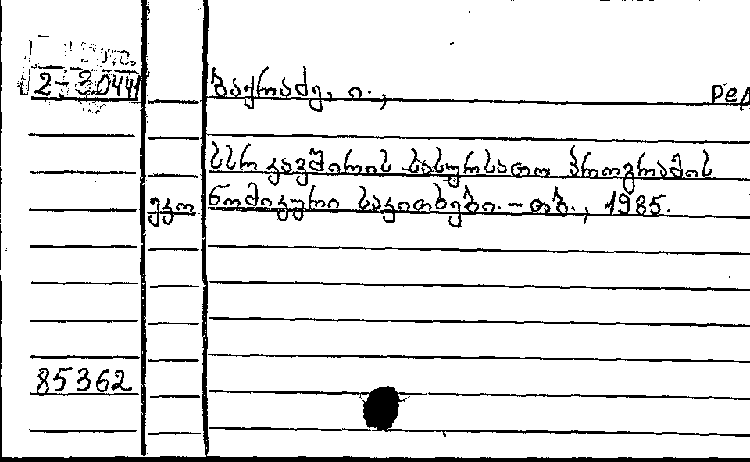 2-3044
ბაქრაძე, ი., ред
სსრ კავშირის სასურსათო პროგრამის
ეკო ნომიკური საკითხები. - თბ., 1985.
85362